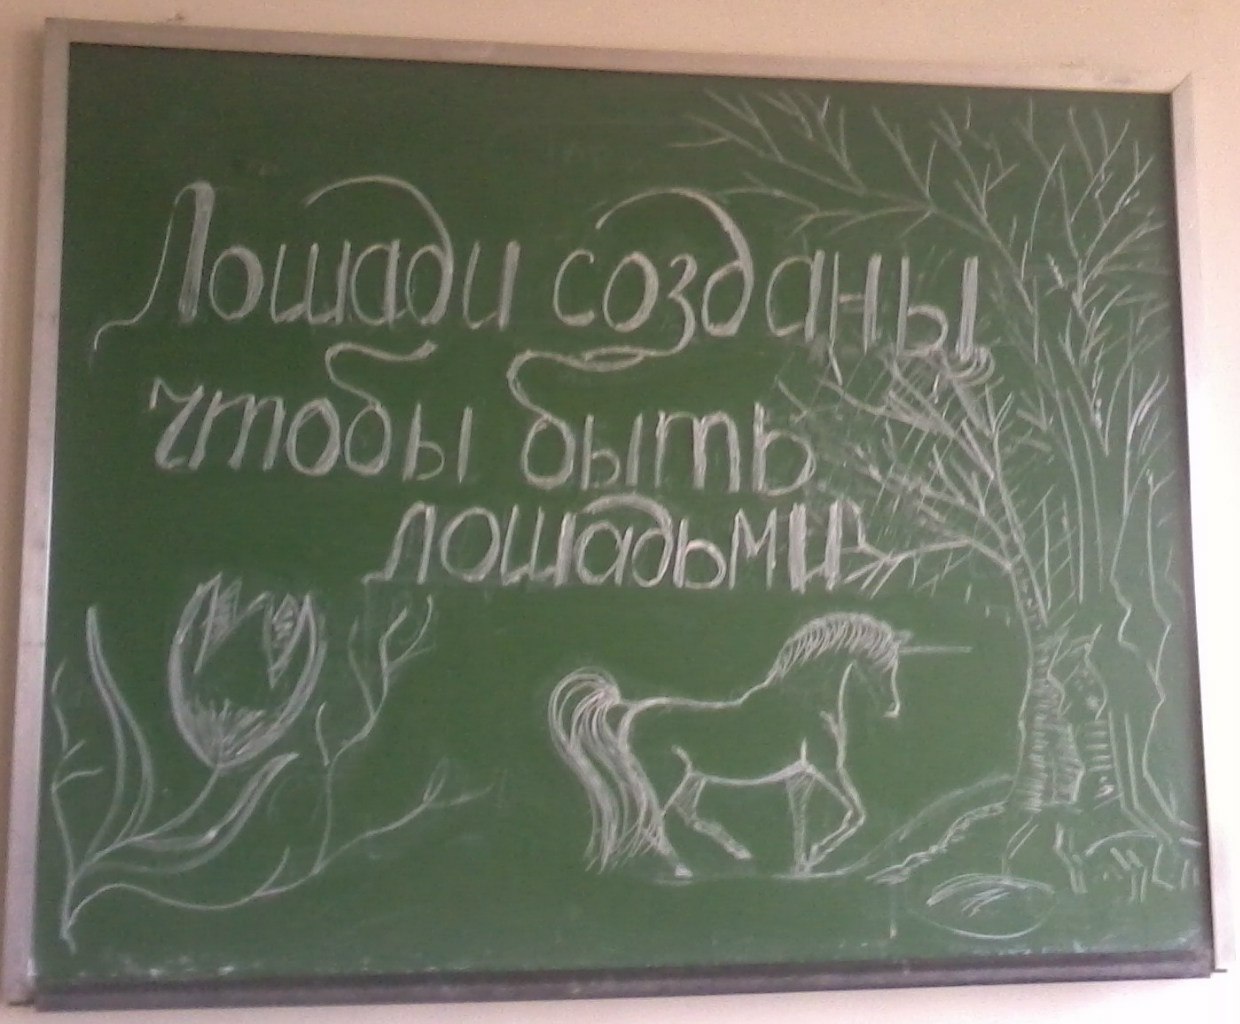 Лошади созданы
чтобы быть
лошадьми